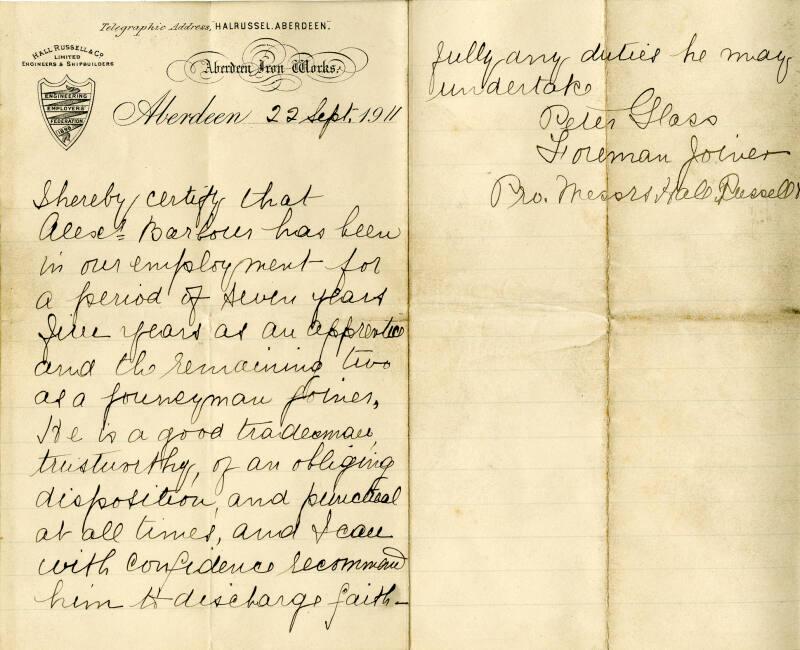 Telegraphic Address, HALRUSSEL. ABERDEEN.
HALL RUSSELL & Co
LIMITED
ENGINEERS & SHIPBUILDERS
ENGINEERING
EMPLOYERS'
FEDERATION
1896
Aberdeen Iron Works.
Aberdeen 22 Sept. 1911
I hereby certify that
Alexr. Barbour has been
in our employment for
a period of seven years
five years as an apprentice
and the remaining two
as a journeyman joiner.
He is a good tradesman,
trustworthy, of an obliging
disposition, and punctual
at all times, and I can
with confidence recommend
him to discharge faith-
fully any duties he may
undertake
Peter Glass
Foreman Joiner
Pro. Messrs Hall Russell &